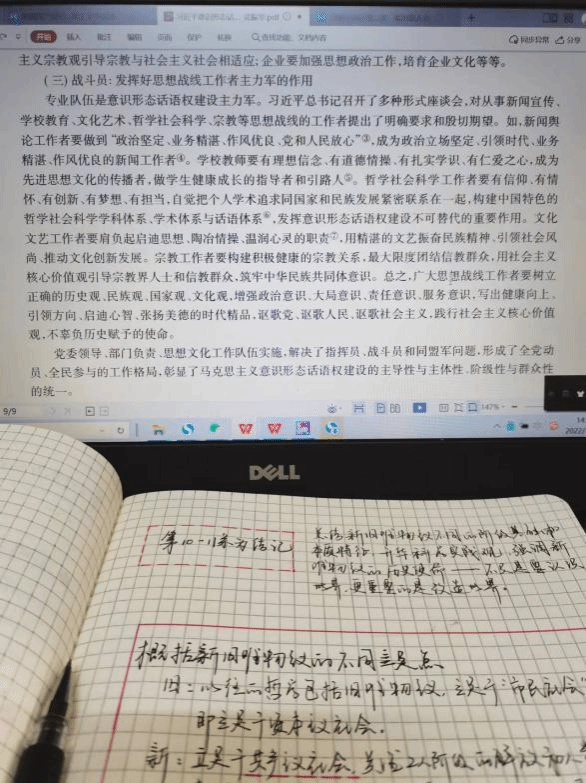 开始 插入 批注 编辑 页面 保护 转换 查找功能、文档内容 同步异常 分享
主义宗教观引导宗教与社会主义社会相适应;企业要加强思想政治工作,培育企业文化等等。
(三)战斗员:发挥好思想战线工作者主力军的作用
专业队伍是意识形态话语权建设主力军。习近平总书记召开了多种形式座谈会,对从事新闻宣传、
学校教育、文化艺术、哲学社会科学、宗教等思想战线的工作者提出了明确要求和殷切期望。如,新闻舆
论工作者要做到“政治坚定、业务精湛、作风优良、党和人民放心”③,成为政治立场坚定、引领时代、业务
精湛、作风优良的新闻工作者④。学校教师要有理想信念、有道德情操、有扎实学识、有仁爱之心,成为
先进思想文化的传播者,做学生健康成长的指导者和引路人⑤。哲学社会科学工作者要有信仰、有情
怀、有创新、有梦想、有担当,自觉把个人学术追求同国家和民族发展紧密联系在一起,构建中国特色的
哲学社会科学学科体系、学术体系与话语体系⑥,发挥意识形态话语权建设不可替代的重要作用。文化
文艺工作者要肩负起启迪思想、陶冶情操、温润心灵的职责⑦,用精湛的文艺振奋民族精神、引领社会风
尚、推动文化创新发展。宗教工作者要构建积极健康的宗教关系,最大限度团结信教群众,用社会主义
核心价值观引导宗教界人士和信教群众,筑牢中华民族共同体意识。总之,广大思想战线工作者要树立
正确的历史观、民族观、国家观、文化观,增强政治意识、大局意识、责任意识、服务意识,写出健康向上、
引领方向、启迪心智、张扬美德的时代精品,讴歌党、讴歌人民、讴歌社会主义,践行社会主义核心价值
观,不辜负历史赋予的使命。
党委领导、部门负责、思想文化工作队伍实施,解决了指挥员、战斗员和同盟军问题,形成了全党动
员、全民参与的工作格局,彰显了马克思主义意识形态话语权建设的主导性与主体性、阶级性与群众性
的统一。
9/9 147%
14
2022/
DELL
第10-11条为结记
关注新旧唯物仪不同的阶级基础和
本质特征,升华科学实践观,强调新
唯物仪的历史使命——不只是要认识
世界,更重要的是改造世界。
概括新旧唯物仪的不同立足点
旧:以往的哲学包括旧唯物仪,立足于“市民社会”
即立足于资本仪社会。
新:立足于共产仪社会,